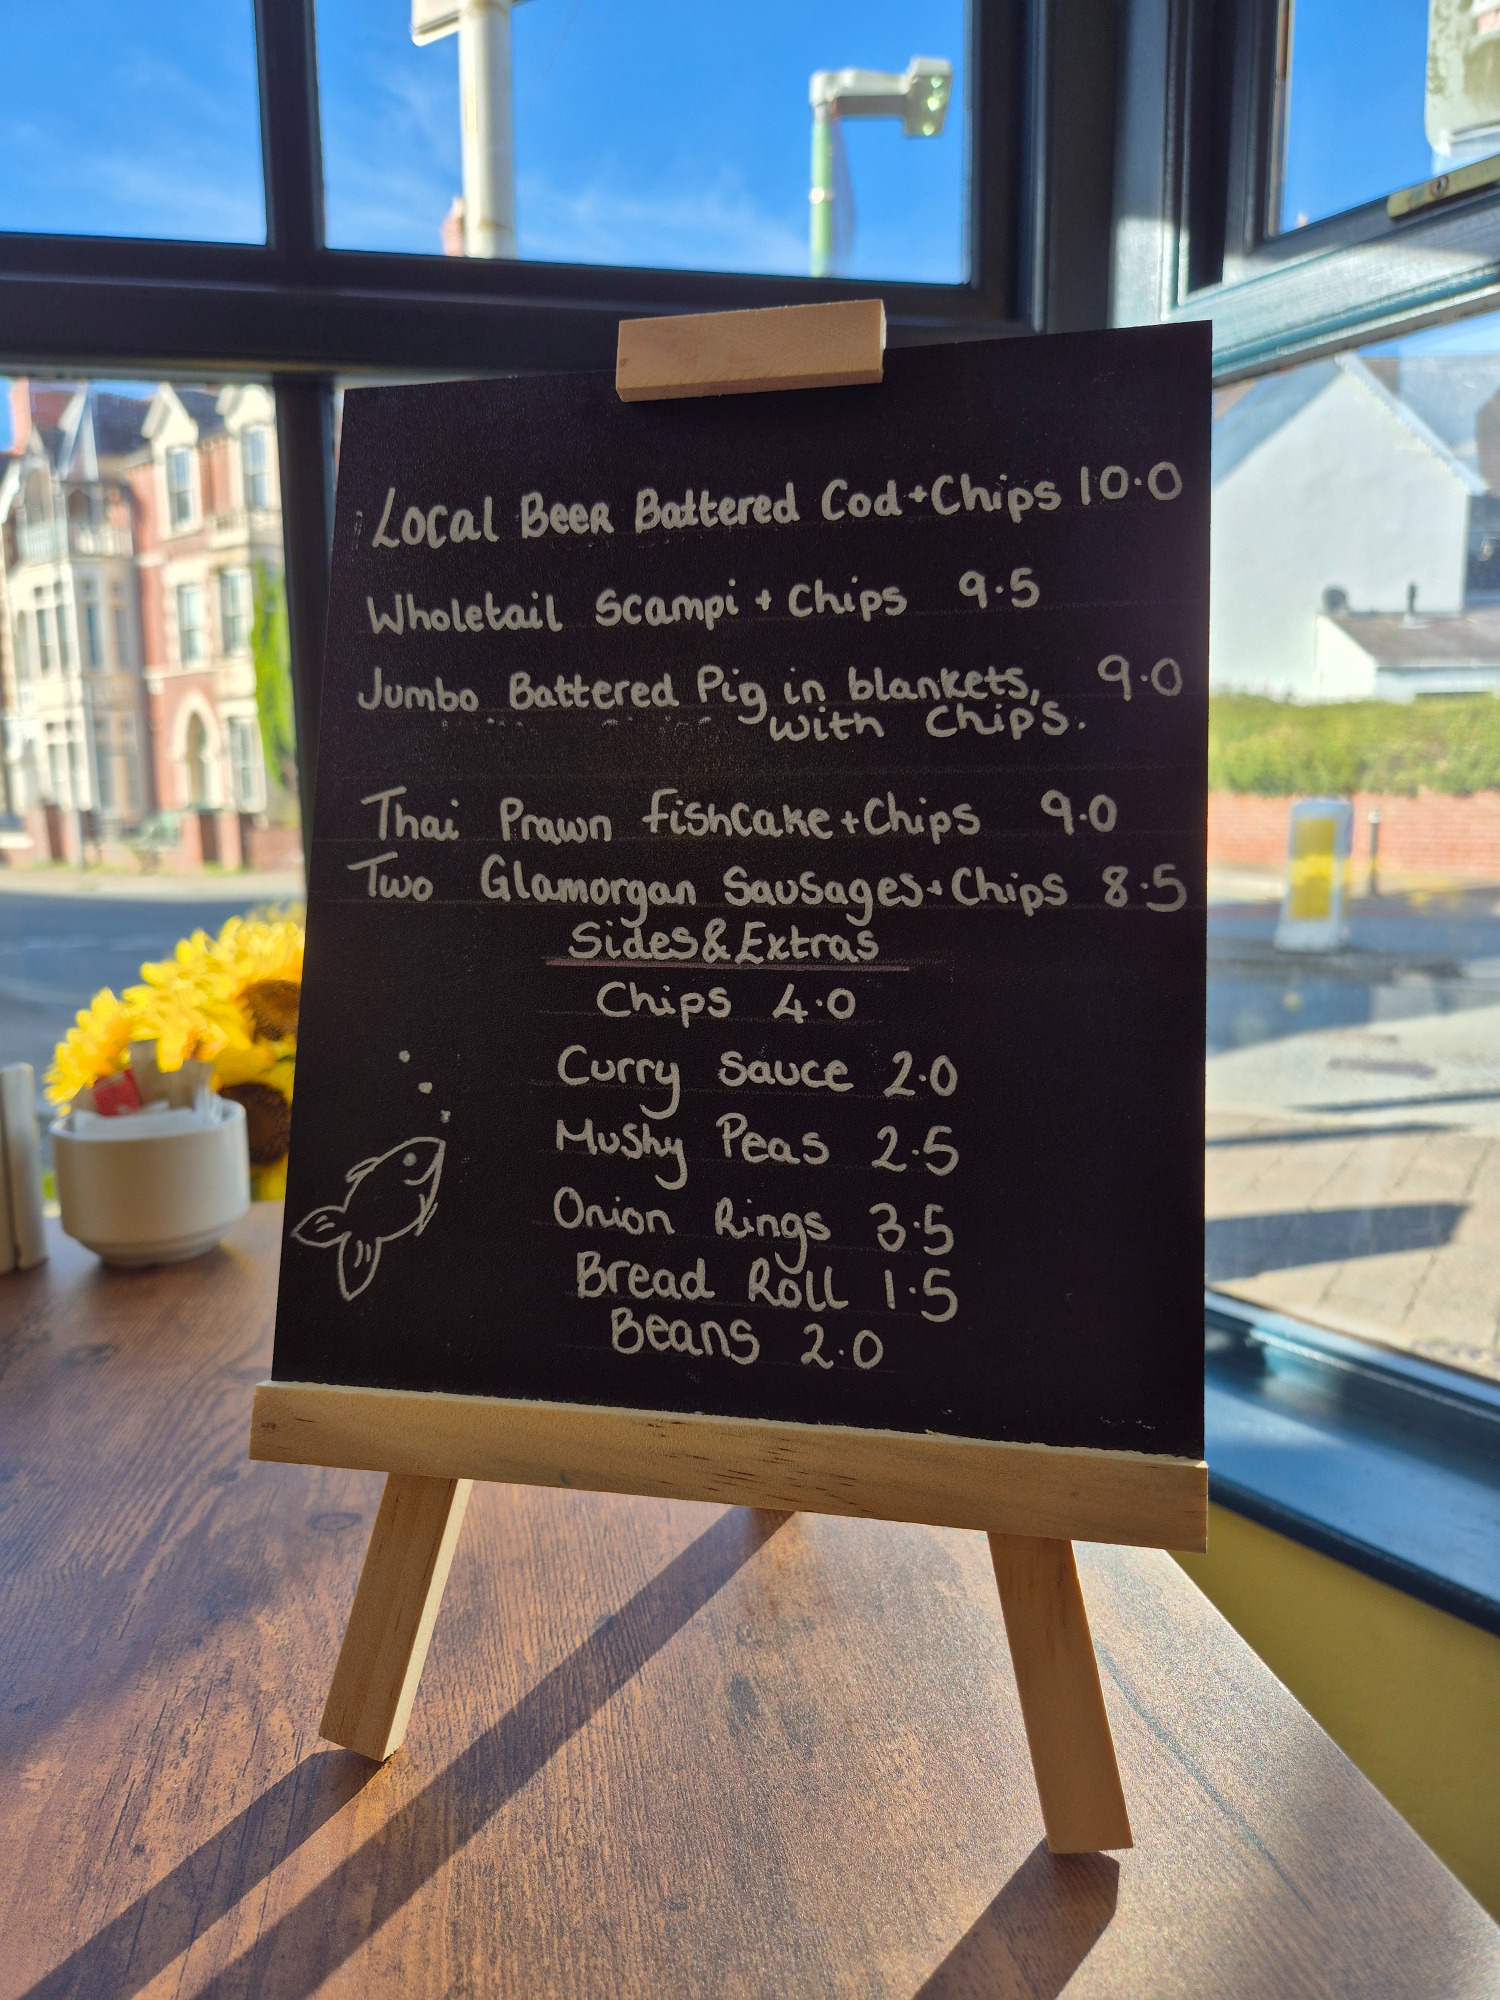 Local Beer Battered Cod + Chips 10.0
Wholetail Scampi + Chips 9.5
Jumbo Battered Pig in blankets, 9.0
with Chips.
Thai Prawn Fishcake + Chips 9.0
Two Glamorgan Sausages + Chips 8.5
Sides & Extras
Chips 4.0
Curry Sauce 2.0
Mushy Peas 2.5
Onion Rings 3.5
Bread Roll 1.5
Beans 2.0